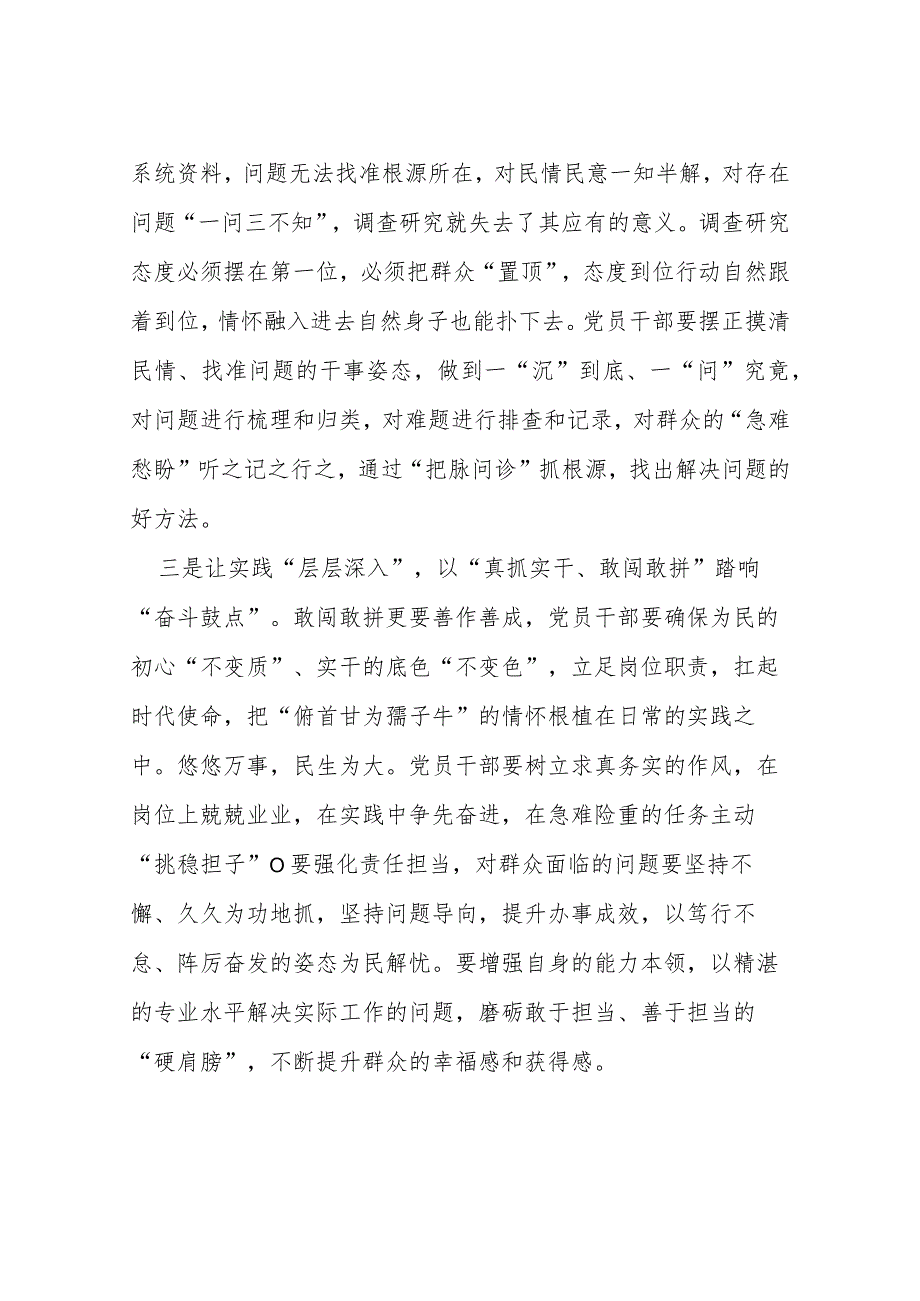 系统资料，问题无法找准根源所在，对民情民意一知半解，对存在
问题“一问三不知”，调查研究就失去了其应有的意义。调查研究
态度必须摆在第一位，必须把群众“置顶”，态度到位行动自然跟
着到位，情怀融入进去自然身子也能扑下去。党员干部要摆正摸清
民情、找准问题的干事姿态，做到一“沉”到底、一“问”究竟，
对问题进行梳理和归类，对难题进行排查和记录，对群众的“急难
愁盼”听之记之行之，通过“把脉问诊”抓根源，找出解决问题的
好方法。
三是让实践“层层深入”，以“真抓实干、敢闯敢拼”踏响
“奋斗鼓点”。敢闯敢拼更要善作善成，党员干部要确保为民的
初心“不变质”、实干的底色“不变色”，立足岗位职责，扛起
时代使命，把“俯首甘为孺子牛”的情怀根植在日常的实践之
中。悠悠万事，民生为大。党员干部要树立求真务实的作风，在
岗位上兢兢业业，在实践中争先奋进，在急难险重的任务主动
“挑稳担子”O要强化责任担当，对群众面临的问题要坚持不
懈、久久为功地抓，坚持问题导向，提升办事成效，以笃行不
怠、阵厉奋发的姿态为民解忧。要增强自身的能力本领，以精湛
的专业水平解决实际工作的问题，磨砺敢于担当、善于担当的
“硬肩膀”，不断提升群众的幸福感和获得感。